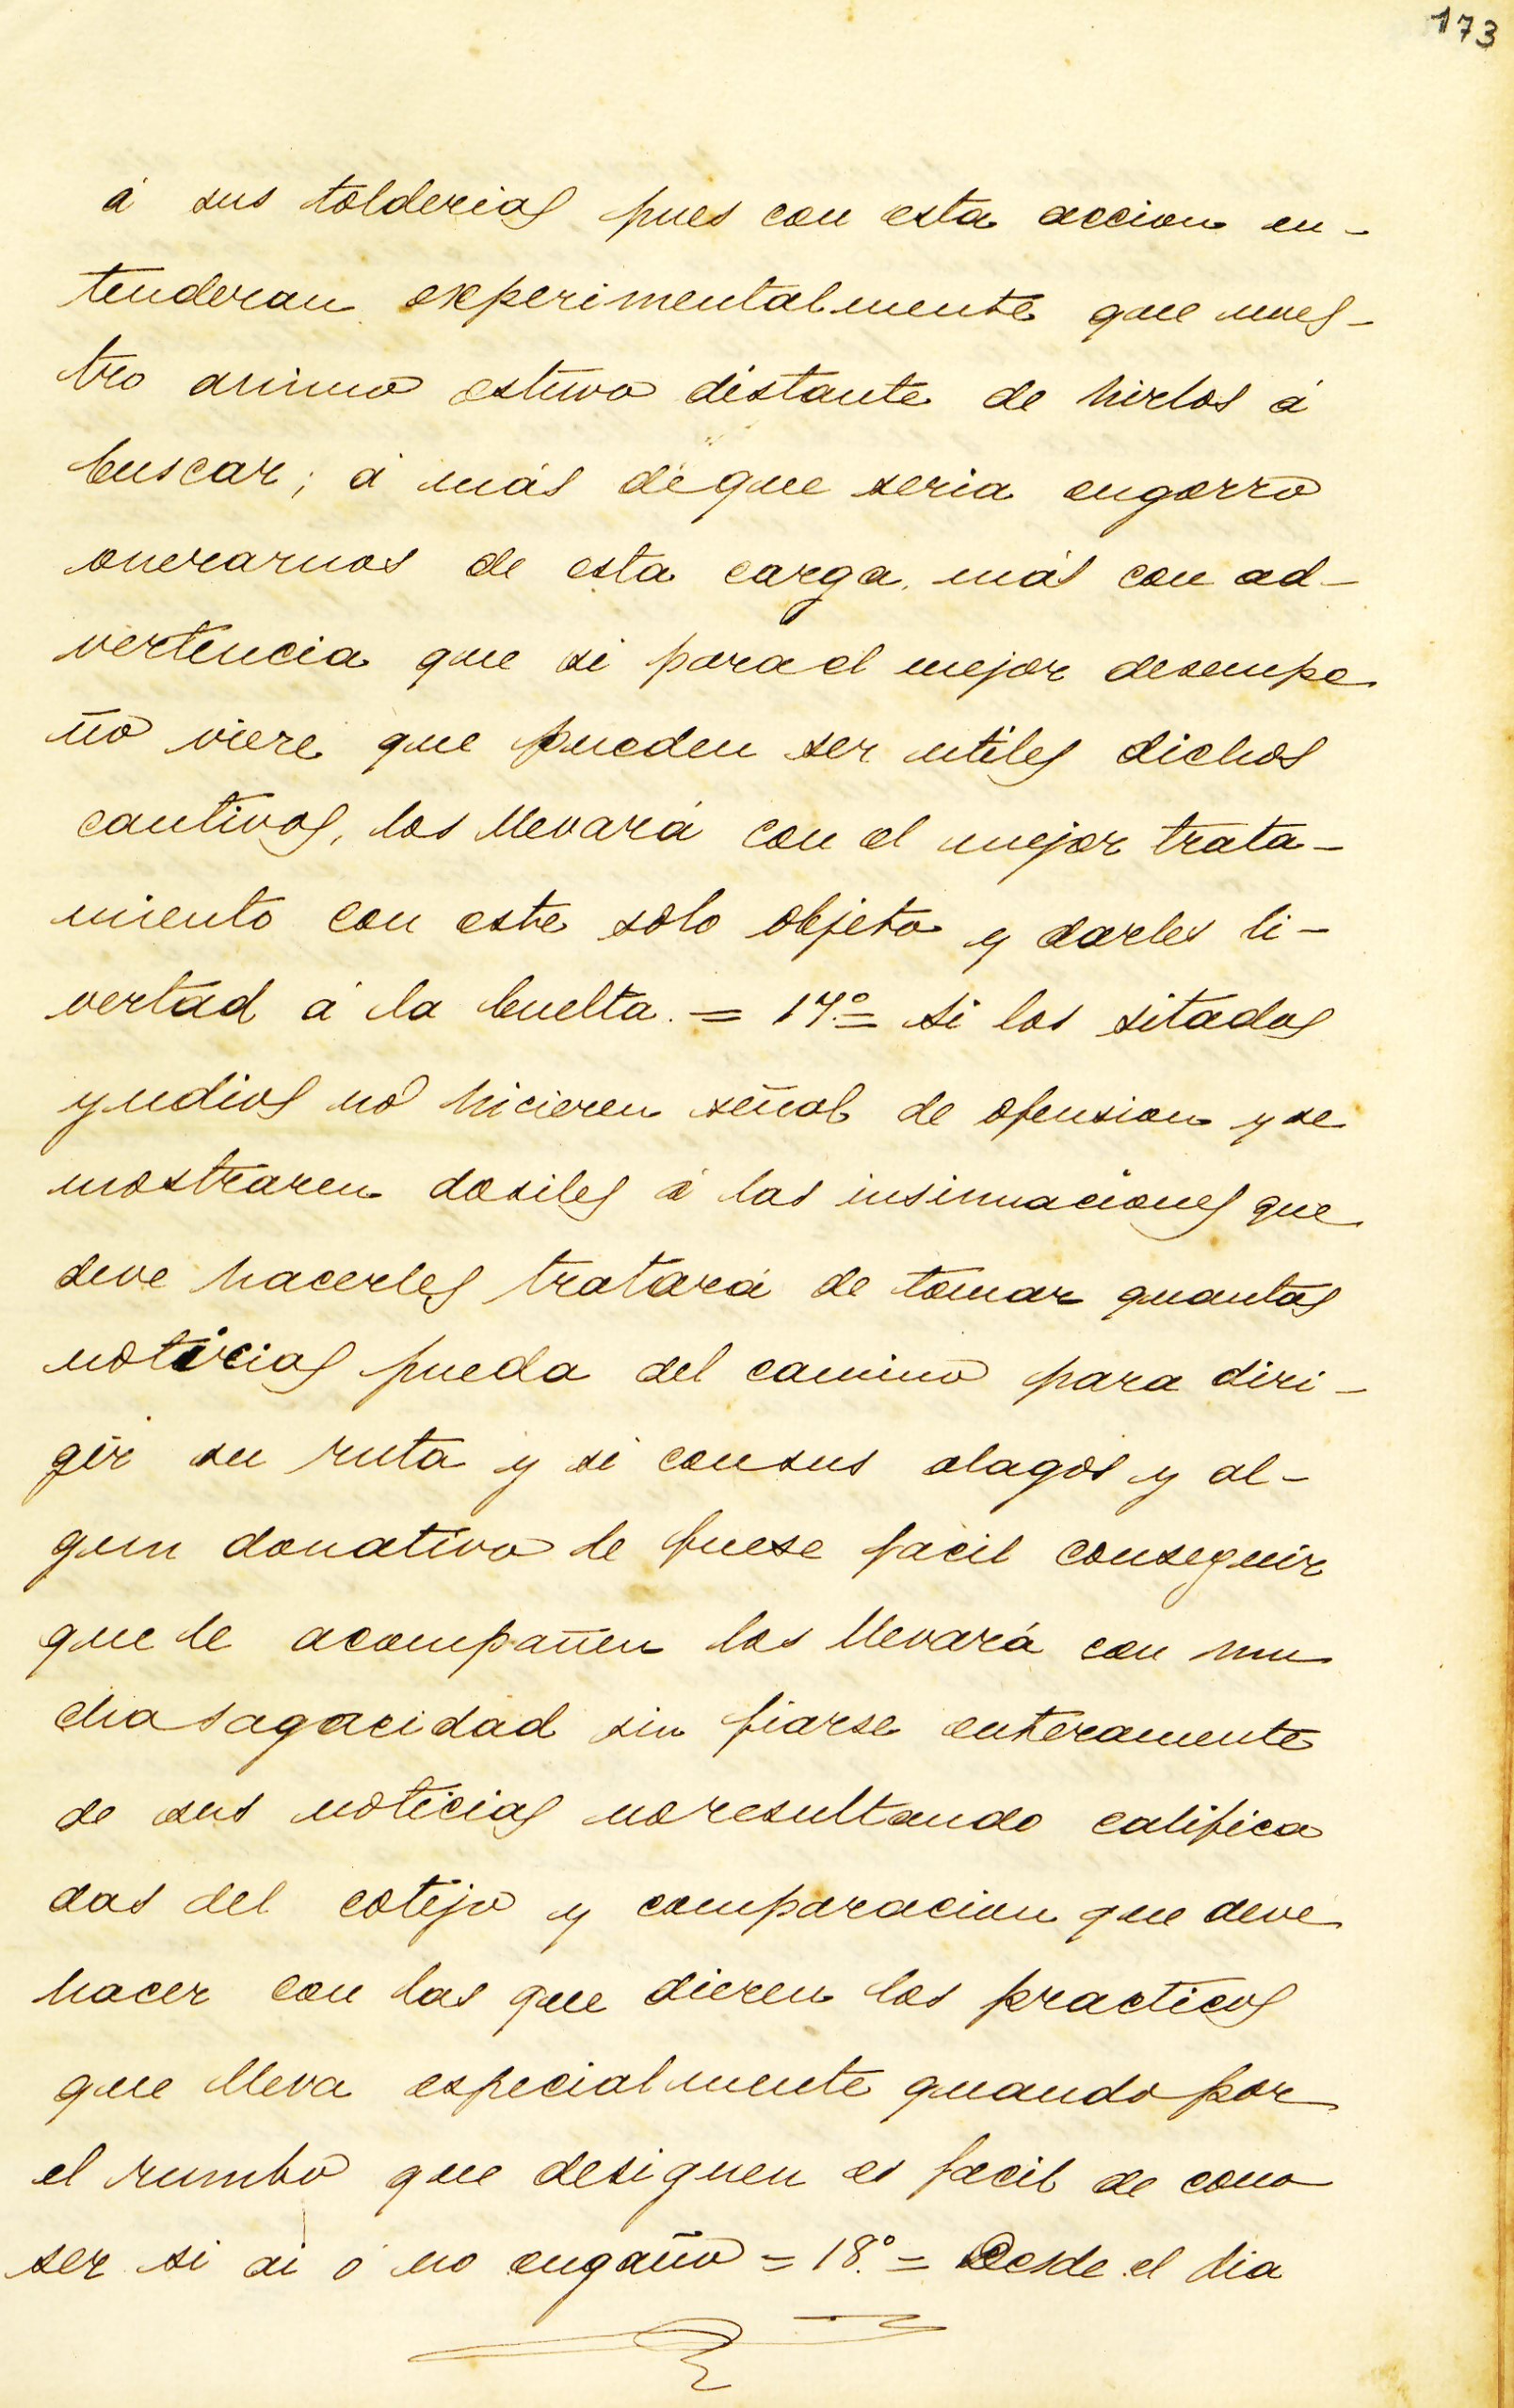 173
á sus tolderias pues con esta accion en-
tenderan experimentalmente que nues-
tro animo estuvo distante de hirlos á
buscar; á más deque seria engorro
onerarnos de esta carga. más con ad-
vertencia que si para el mejor desempe
ño viere que pueden ser utiles dichos
cautivos, los llevará con el mejor trata-
miento con este solo objeto y darles li-
vertad á la buelta. = 17.º = Si los sitados
yndios no hicieren señal de ofension y se
mostraren dosiles á las insinuaciones que
deve hacerles tratará de tomar quantas
noticias pueda del camino para diri-
gir su ruta y si consus alagos y al-
gun donativo le fuese facil conseguir
que le acompañen los llevará con mu
cha sagacidad sin fiarse enteramente
de sus noticias no resultando califica
das del cotejo y comparacion que deve
hacer con las que dieren los practicos
que lleva especialmente quando por
el rumbo que designen es facil de cono
ser si ai ó no engaño = 18.º = Desde el dia